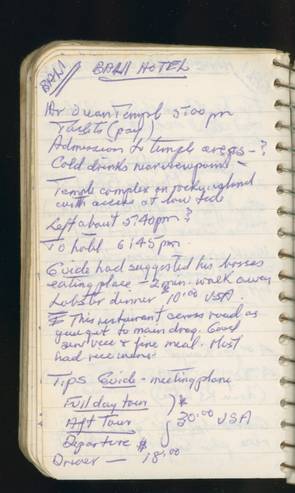 BALI
BALI HOTEL
Ar Ocean Templ 5:00 pm
Toilets (pay)
Admission to temple areas - ?
Cold drinks near viewpoint -
Temple complex on rocky island
with access at low tide
Left about 5:40 pm ?
To hotel 6:45 pm
Guide had suggested his bosses
eating place - 2 min. walk away
Lobster dinner 10.00 USA
This restaurant across road as
you get to main drag. Good
service & fine meal. Must
Tips Guide - meeting plane
Full day tour
Aft Tour } 30.00 USA
Departure
Driver - 18.00